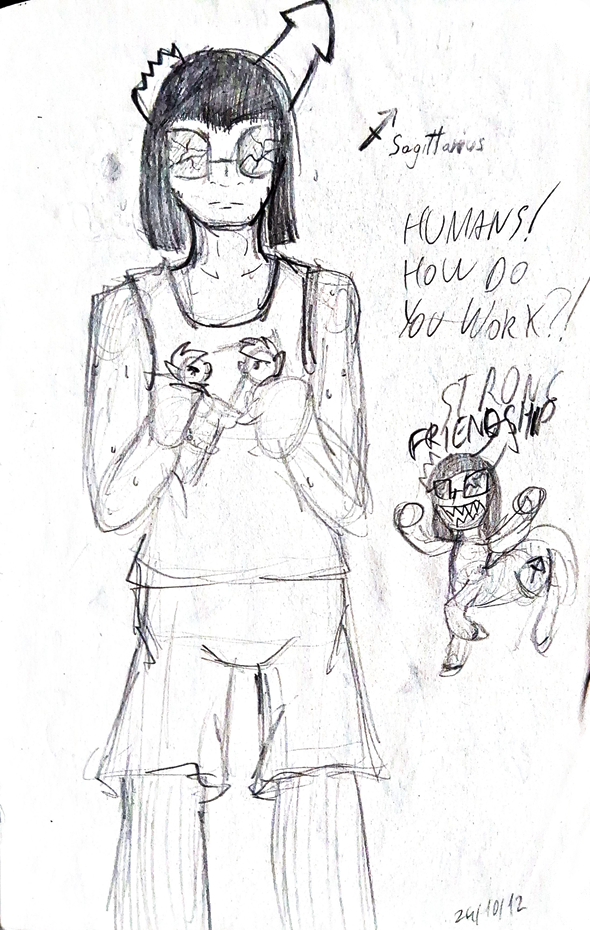 Sagittarius
HUMANS!
HOW DO
YOU WORK?!
STRONG
FRIENDSHIP
24/10/12